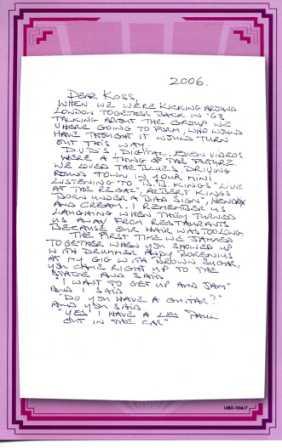 2006.
DEAR KOSS,
WHEN WE WERE KICKING AROUND
LONDON TOGETHER BACK IN '68
TALKING ABOUT THE GROUP WE
WHERE GOING TO FORM, WHO WOULD
HAVE THOUGHT IT WOULD TURN
OUT THIS WAY.
D.V.D'S DIGITAL, EVEN VIDEOS
WERE A THING OF THE FUTURE
WE LOVED THE BLUES DRIVING
ROUND TOWN IN YOUR MINI
LISTENING TO "B.B. KINGS" LIVE
AT THE REGAL, ALBERT KINGS
BORN UNDER A BAD SIGN", HENDRIX
AND CREAM. I REMEMBER US
LAUGHING WHEN THEY TURNED
US AWAY FROM RESTAURANTS
BECAUSE OUR HAIR WAS TOO LONG
THE FIRST TIME WE JAMMED
TOGETHER WHEN YOU SHOWED UP
WITH DRUMMER ANDY BORENIUS
AT MY GIG WITH BROWN SUGAR.
YOU CAME RIGHT UP TO THE
STAGE AND SAID
"I WANT TO GET UP AND JAM"
AND I SAID
"DO YOU HAVE A GUITAR?"
AND YOU SAID
"YES I HAVE A LES PAUL
OUT IN THE CAR"